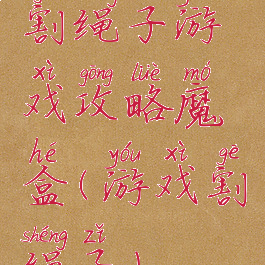 割绳子游
xì gōng lüè mó
戏攻略魔
hé yóu xì gē
盒(游戏割
shéng zǐ
绳子)